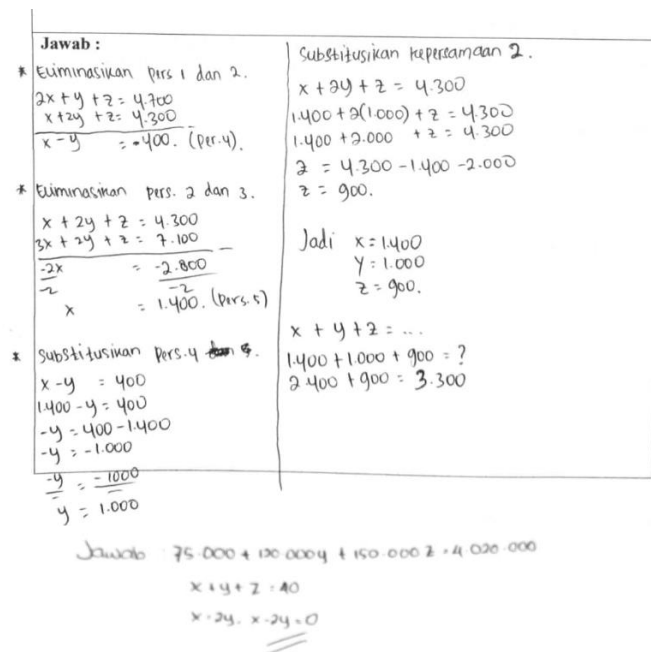 Jawab :
* Eliminasikan Pers 1 dan 2.
2x + y + z = 4.700
x + 2y + z = 4.300
x - y = 400. (Per.4).
* Eliminasikan pers. 2 dan 3.
x + 2y + z = 4.300
3x + 2y + z = 7.100
-2x = -2.800
-2 -2
x = 1.400. (Pers.5)
* Substitusikan Pers.4
x - y = 400
1.400 - y = 400
-y = 400 - 1.400
-y = -1.000
-y = -1000
- -
y = 1.000
Substitusikan kepersamaan 2.
x + 2y + z = 4.300
1.400 + 2(1.000) + z = 4.300
1.400 + 2.000 + z = 4.300
z = 4.300 - 1.400 - 2.000
z = 900.
Jadi x = 1.400
y = 1.000
z = 900.
x + y + z = ...
1.400 + 1.000 + 900 = ?
2.400 + 900 = 3.300
Jawab 75.000 + 120.000y + 150.000 z = 4.020.000
x + y + z = 40
x = 2y. x - 2y = 0